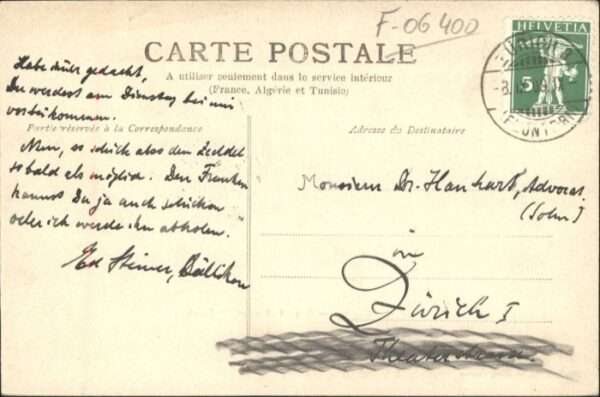 F-06400
HELVETIA
5
CARTE POSTALE
A utiliser seulement dans le service intérieur
(France, Algérie et Tunisie)
Habe immer gedacht,
Du werdest am Dienstag bei mir
vorbeikommen.
Partie réservée à la Correspondance
Nun, so schick also den Zeddel
so bald als möglich. Den Franken
kannst Du ja auch schicken
oder ich werde ihn abholen.
Ed Steiner,
Adresse du Destinataire
Monsieur Dr. Hanhart, Advocat
(Sohn)
in
Zürich I